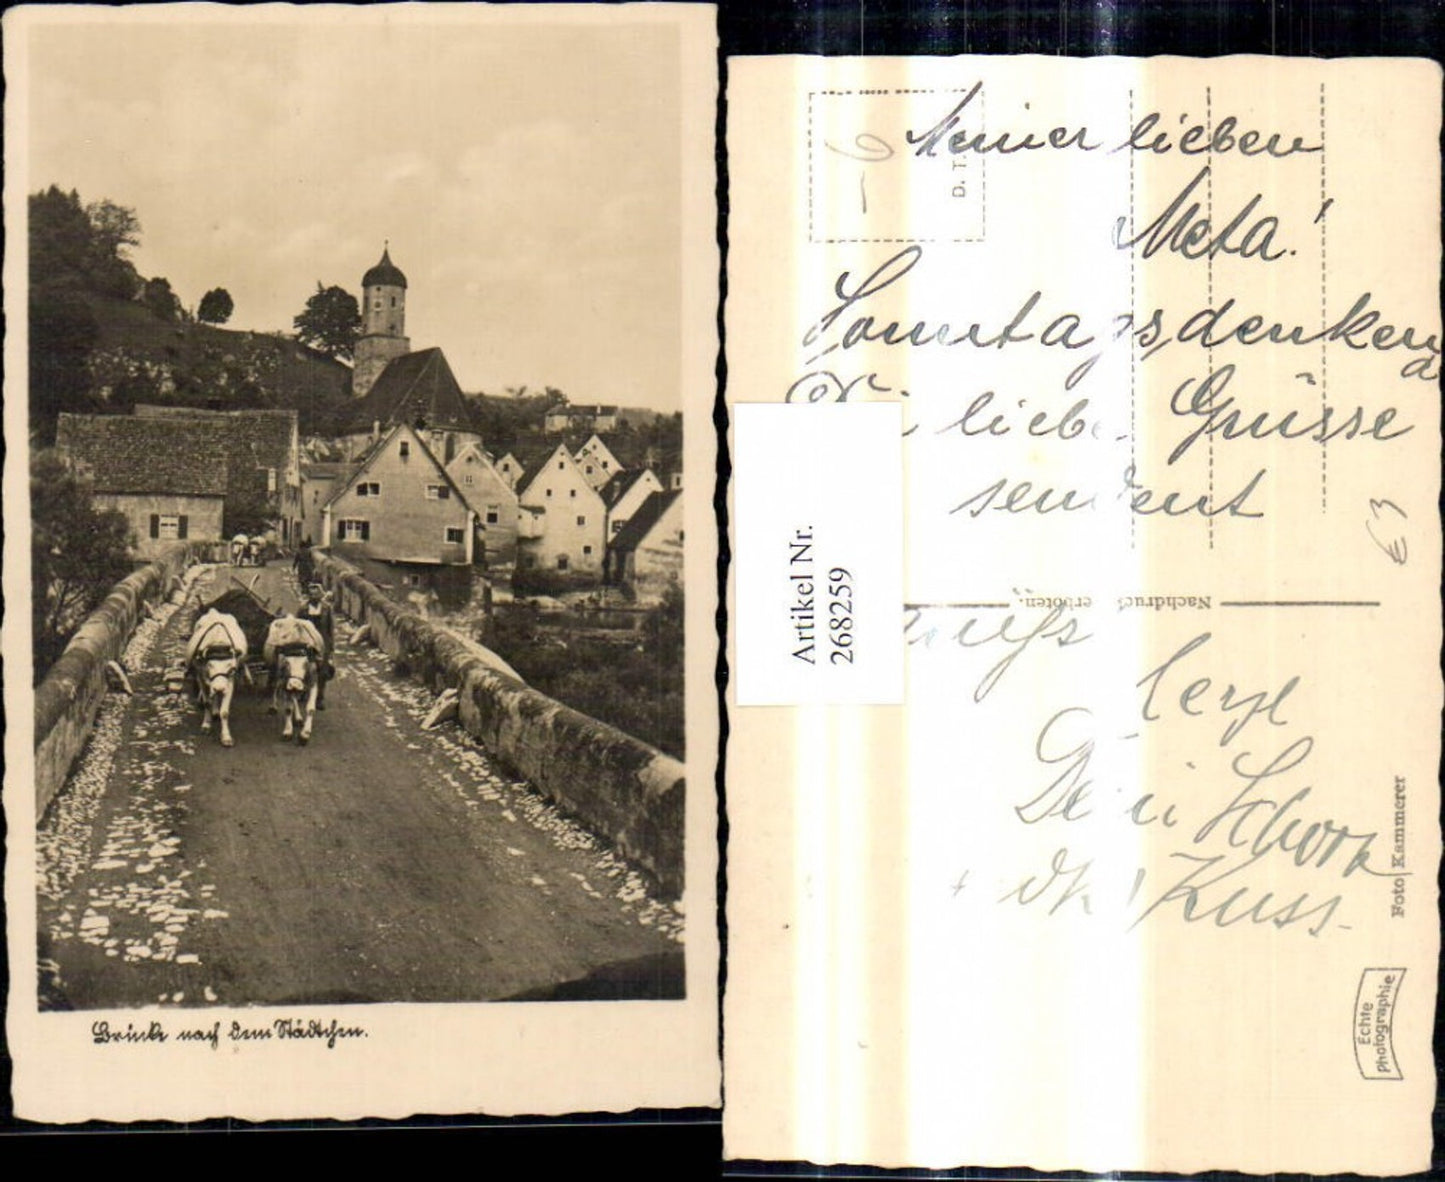 Brücke nach dem Städtchen.
Meiner lieben
Meta!
Sonntagsdenken
liebe Grüsse
sendent
Nachdruck verboten.
herzl
Dein Schorz
+ Kuss.
Artikel Nr.
268259
Foto Kammerer
Echte
photographie
D. T.
- 6
€3